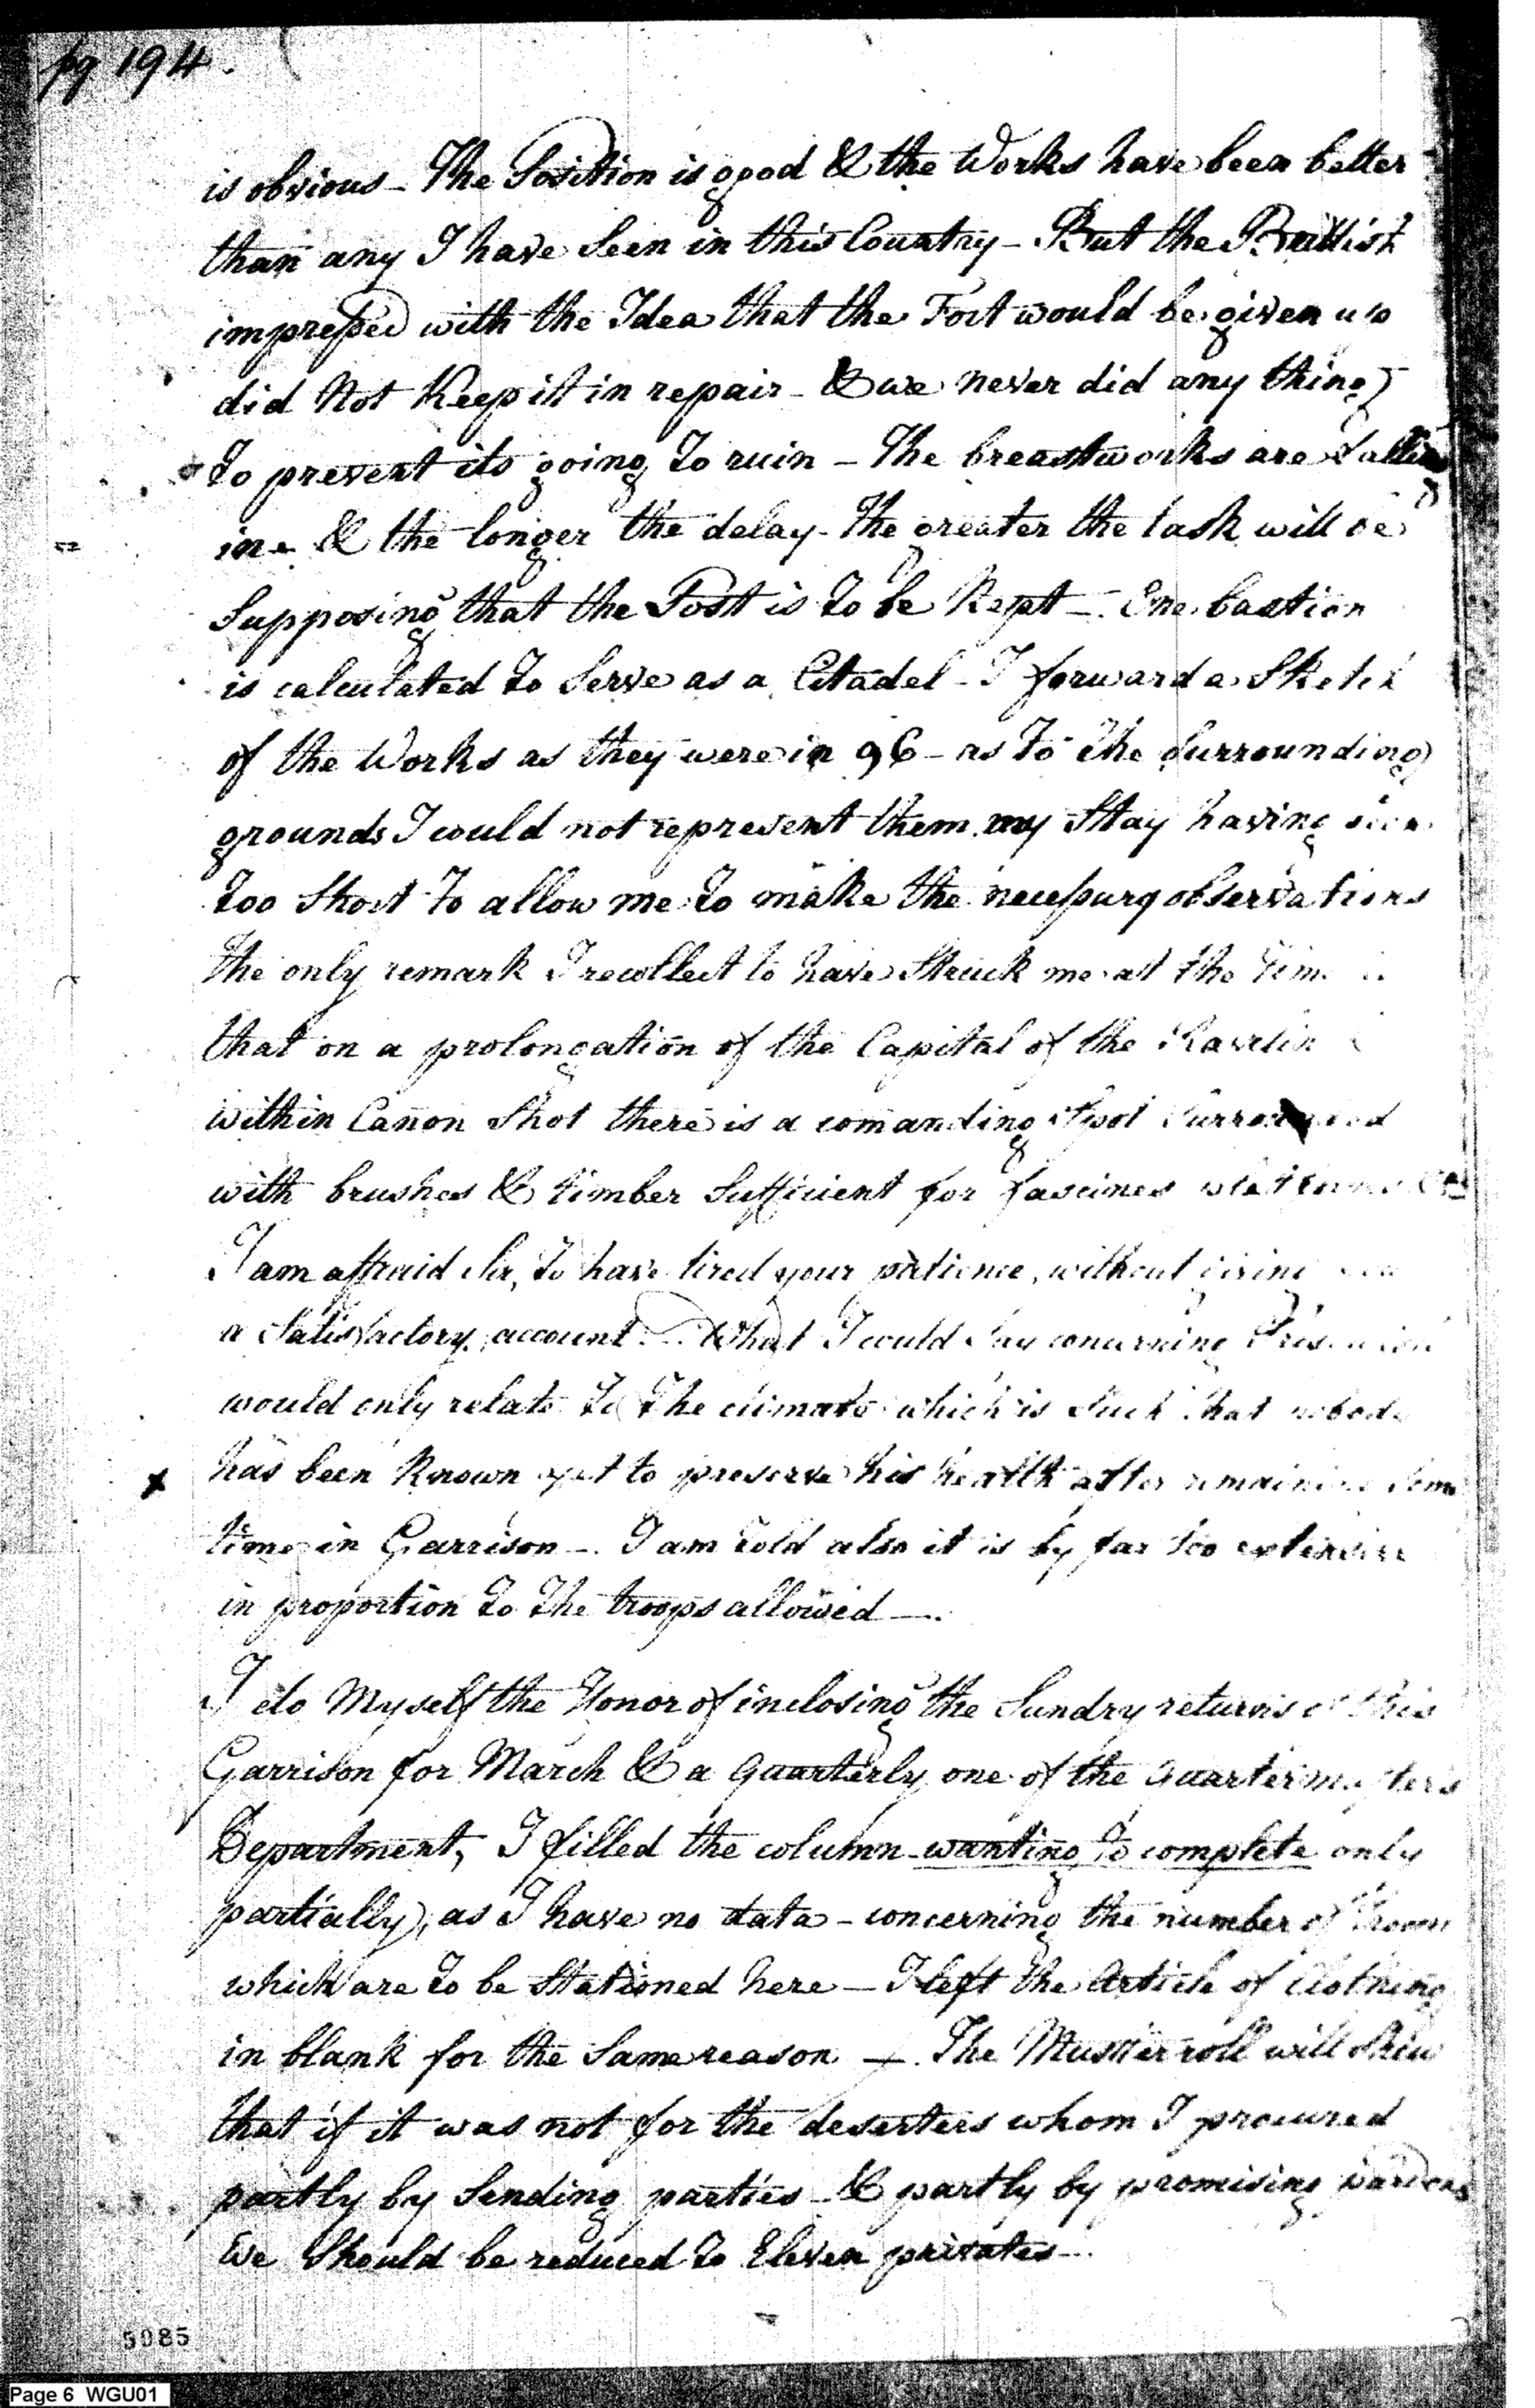 pg 194.
is obvious - The Position is good & the Works have been better
than any I have Seen in this Country - But the Brittish
impressed with the Idea that the Fort would be given up
did Not Keep it in repair - & we never did any thing
To prevent its going To ruin - The breastworks are falling
in - & the longer the delay - The greater the task will be
Supposing that the Post is To be Kept - One bastion
is calculated To Serve as a Citadel - I forward a Sketch
of the Works as they were in 96 - as To The Surrounding
grounds I would not represent them my Stay having been
too Short To allow me To make the necessary observations
The only remark I recollect to have Struck me at the time is
that on a prolongation of the Capital of the Ravelin
within Canon Shot there is a comanding Spot Surrounded
with brushes & timber Sufficient for fascines platforms
I am affraid Sir, To have tired your patience, without giving you
a Satisfactory account - What I could Say concerning
would only relate To The climate which is Such that nobody
has been Known yet to preserve his health after remaining Some
time in Garrison - I am told also it is by far too extensive
in proportion To The troops allowed -
I do Myself the Honor of inclosing the Sundry returns of this
Garrison for March & a Quarterly one of the Quartermasters
Department, I filled the column wanting To complete only
partially, as I have no data - concerning the number of troops
which are To be Stationed here - I left The Article of Clothing
in blank for the Same reason - The Muster roll will Shew
that if it was not for the deserters whom I procured
partly by Sending parties - & partly by promising pardons
We Should be reduced To Eleven privates -
5085
Page 6 WGU01